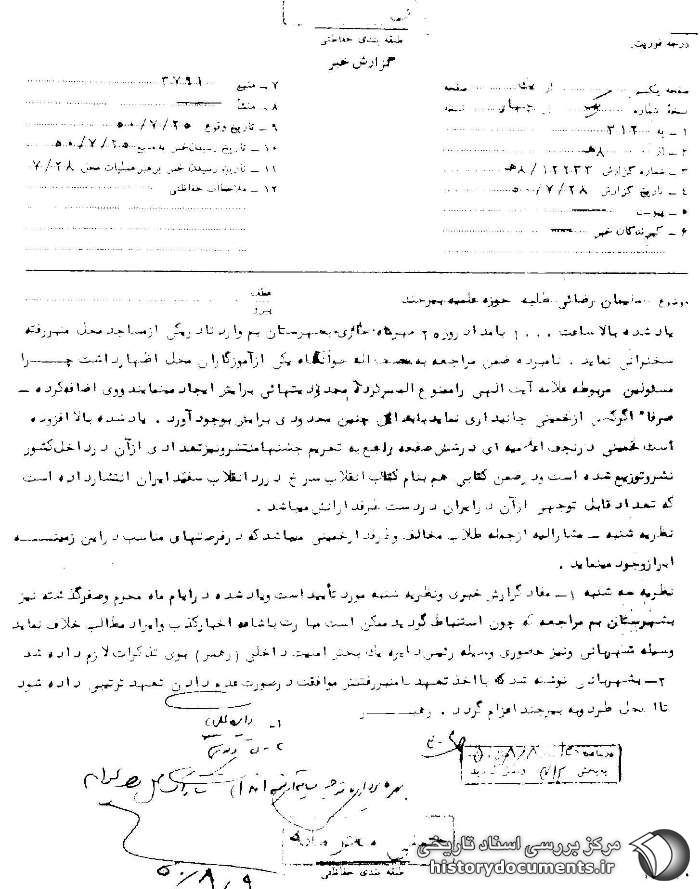 طبقه بندی حفاظتی
درجه فوریت
گزارش خبر
صفحه یکم از صفحه
نسخه شماره از چهار نسخه
۱ ـ به ۳۱۲
۲ ـ از ۸هـ
۳ ـ شماره گزارش ۱۲۲۳۳/۸هـ
۴ ـ تاریخ گزارش ۵۰/۷/۲۸
۵ ـ پیوست
۶ ـ گیرندگان خبر
۷ ـ منبع ۳۷۹۱
۸ ـ منشأ
۹ ـ تاریخ وقوع ۵۰/۷/۲۵
۱۰ ـ تاریخ رسیدن خبر به منبع ۵۰/۷/۲۵
۱۱ ـ تاریخ رسیدن خبر برهبر عملیات محل ۷/۲۸
۱۲ ـ ملاحظات حفاظتی
موضوع سلیمان رضائی طلبه حوزه علمیه بیرجند
عطف
پیرو
یاد شده بالا ساعت ۱۰۰۰ بامداد روز ۲۵ مهرماه جاری بشهرستان بم وارد تا در یکی از مساجد محل منبر رفته
سخنرانی نماید . نامبرده ضمن مراجعه به یکی از آموزگاران محل اظهار داشت چرا
مسئولین مربوطه علامه آیت الهی را ممنوع المنبر کرده محدودیتهائی برایش ایجاد مینمایند ووی اضافه کرده ـ
صرفا" اگر کسی از خمینی جانبداری نماید باید این چنین محدودی برایش بوجود آورد . یاد شده بالا افزوده
است خمینی در نجف اعلامیه ای در شش صفحه راجع به تحریم جشنها منتشر و نیز تعدادی از آن در داخل کشور
نشر و توزیع شده است و در ضمن کتابی هم بنام کتاب انقلاب سرخ در رد انقلاب سفید ایران انتشار داده است
که تعداد قابل توجهی از آن در ایران در دست طرفدارانش میباشد .
نظریه شنبه ـ مشارالیه از جمله طلاب مخالف و طرفدار خمینی میباشد که در فرصتهای مناسب در این زمینه
ابراز وجود مینماید .
نظریه سه شنبه ۱ـ مفاد گزارش خبری و نظریه شنبه مورد تأیید است و یاد شده در ایام ماه محرم و صفر گذشته نیز
بشهرستان بم مراجعه که چون استنباط گردید ممکن است مبادرت باشاعه اخبار کذب و ایراد مطالب خلاف نماید
وسیله شهربانی و نیز حضوری وسیله رئیس دایره یک بخش امنیت داخلی (رهبر) بوی تذکرات لازم داده شد
۲ـ بشهربانی نوشته شد که با اخذ تعهد با منبر رفتنش موافقت در صورت ندادن تعهد ترتیبی داده شود
تا از محل طرد و به بیرجند اعزام گردد . رهبر
۵۰/۸/۸
۵۰/۸/۹
خیلی محرمانه
طبقه بندی حفاظتی
مرکز بررسی اسناد تاریخی
historydocuments.ir